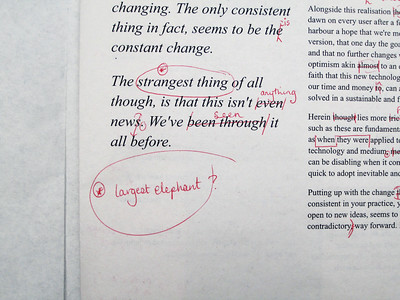 changing. The only consistent
thing in fact, seems to be the
is
constant change.
The strangest thing of all
though, is that this isn't even
anything
news. We've been through it
seen
all before.
largest elephant?
Alongside this realisation
dawn on every user after a
harbour a hope that we're
version, that one day the
and that no further changes
optimism akin almost to an
faith that this new technology
our time and money is, can
solved in a sustainable and
Herein though lies more
such as these are fundamenta
as when they were applied to
technology and medium,
can be disabling when it com
quick to adopt inevitable and
Putting up with the change
consistent in your practice, y
open to new ideas, seems to
contradictory, way forward.